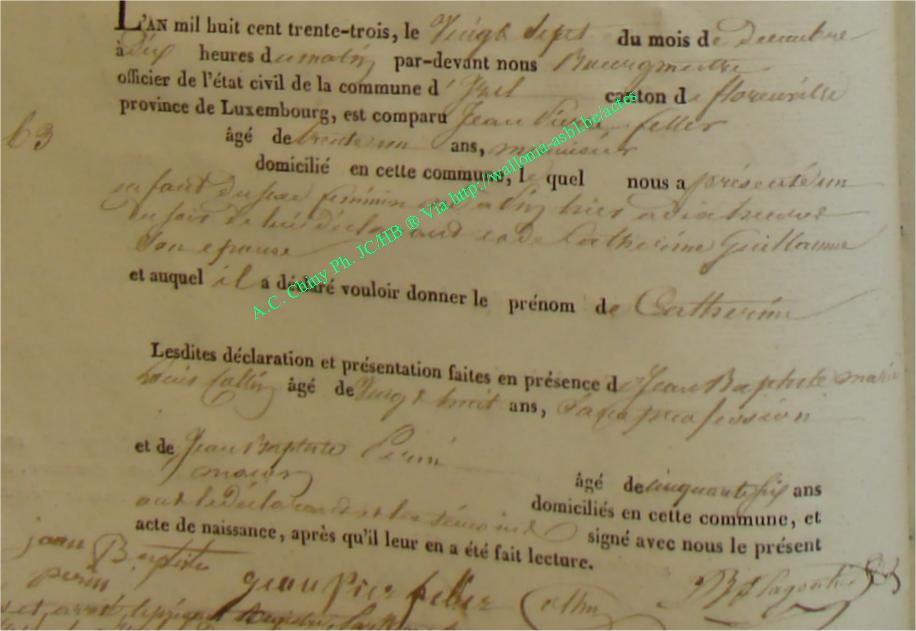 L'AN mil huit cent trente-trois, le Vingt Sept du mois de decembre
à Dix heures du matin par-devant nous Bourgmestre
officier de l'état civil de la commune d' Izel canton de florenville
province de Luxembourg, est comparu Jean Pierre feller
63
âgé de trente un ans, menuisier
domicilié en cette commune, le quel nous a présenté un
enfant du sexe féminin né a hier a
du soir de lui déclarant et de Catherinne Guillaume
Son epouse
et auquel il a déclaré vouloir donner le prénom de Catherinne
Lesdites déclaration et présentation faites en présence de Jean Baptiste marie
Louis Collin âgé de Vingt huit ans, Sans profession
et de Jean Baptiste Perin
âgé de cinquante six ans
domiciliés en cette commune, et
ont le déclarant et les témoins signé avec nous le présent
acte de naissance, après qu'il leur en a été fait lecture.
jean Baptiste
perin
jean Pier feller
Collin
A.C. Chiny Ph. JC/HB ® Via http://wallonia-asbl.be/actes